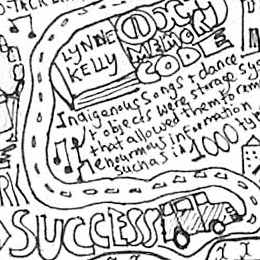 LYNNE
KELLY
MEMORY
CODE
Indigenous songs + dance
+ objects were storage sy
that allowed them to rem
enourmous information
such as in 1000 ty
SUCCESS